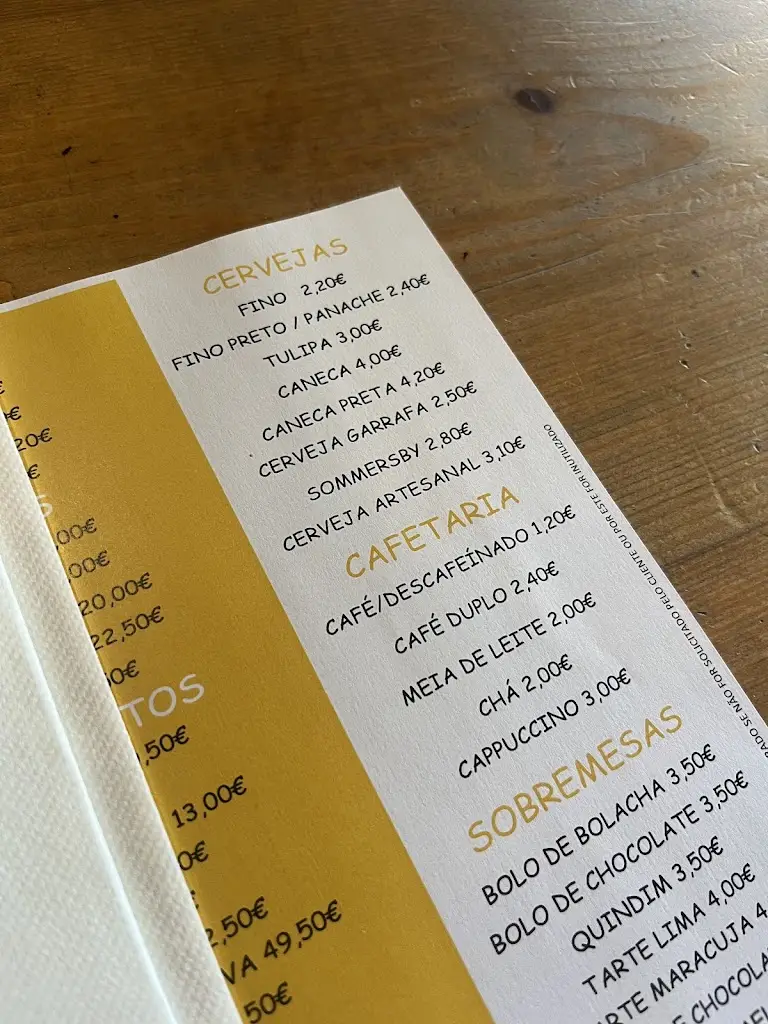 20€
€
,00€
00€
20,00€
22,50€
0€
TOS
,50€
13,00€
0€
2,50€
VA 49,50€
50€
CERVEJAS
FINO 2,20€
FINO PRETO / PANACHE 2,40€
TULIPA 3,00€
CANECA 4,00€
CANECA PRETA 4,20€
CERVEJA GARRAFA 2,50€
SOMMERSBY 2,80€
CERVEJA ARTESANAL 3,10€
CAFETARIA
CAFÉ/DESCAFEÍNADO 1,20€
CAFÉ DUPLO 2,40€
MEIA DE LEITE 2,00€
CHÁ 2,00€
CAPPUCCINO 3,00€
SOBREMESAS
BOLO DE BOLACHA 3,50€
BOLO DE CHOCOLATE 3,50€
QUINDIM 3,50€
TARTE LIMA 4,00€
RTE MARACUJA 4
E CHOCOLA
RADO SE NÃO FOR SOLICITADO PELO CLIENTE OU POR ESTE FOR INUTILIZADO